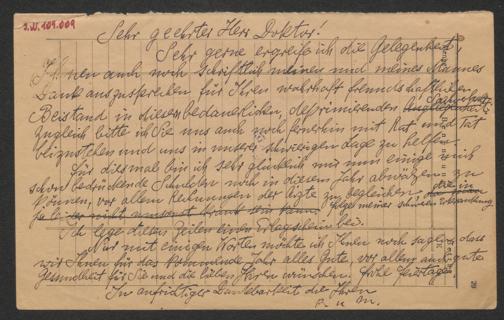 J.W. 109.009
Sehr geehrter Herr Doktor!
Sehr gerne ergreife ich die Gelegenheit,
Ihnen auch noch schriftlich meinen und meines Mannes
Dank auszusprechen für Ihren wahrhaft freundschaftlichen
Beistand in dieser bedauerlichen, deprimierenden
Zugleich bitte ich Sie uns auch noch fernerhin mit Rat und Tat
beizustehen und uns in unserer schwierigen Lage zu helfen.
Für diesmal bin ich sehr glücklich nur nun einige mich
schon bedrückende Schulden noch in diesem Jahr abwälzen zu
können, vor allem Rechnungen der Ärzte zu begleichen. die in
meiner schweren Erkrankung
Ich lege diesen Zeilen einen Erlagschein bei.
Nur mit einigen Worten möchte ich Ihnen noch sagen, dass
wir Ihnen für das kommende Jahr alles Gute, vor allem auch gute
Gesundheit für Sie und die lieben Ihren wünschen. Frohe Feiertage!
In aufrichtiger Dankbarkeit die Ihren
P. u M.